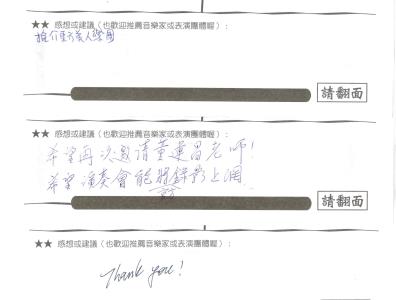 ★★ 感想或建議（也歡迎推薦音樂家或表演團體喔）：
推介東方美人樂團
請翻面
★★ 感想或建議（也歡迎推薦音樂家或表演團體喔）：
希望再次邀請董運昌老師！
希望演奏會能將錄影上網
請翻面
★★ 感想或建議（也歡迎推薦音樂家或表演團體喔）：
Thank you!